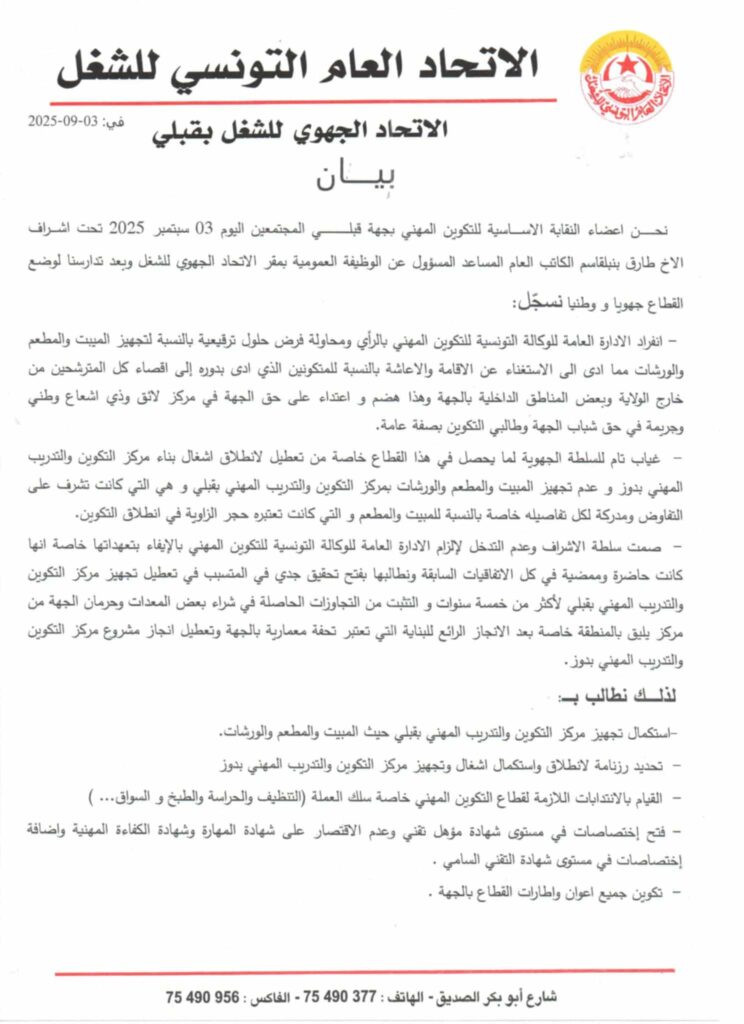 الاتحاد العام التونسي للشغل
الاتحاد العام التونسي للشغل
الاتحاد الجهوي للشغل بقبلي
في: 03-09-2025
بيـــان
نحـــن اعضاء النقابة الاساسية للتكوين المهني بجهة قبلـــــي المجتمعين اليوم 03 سبتمبر 2025 تحت اشراف
الاخ طارق بنبلقاسم الكاتب العام المساعد المسؤول عن الوظيفة العمومية بمقر الاتحاد الجهوي للشغل وبعد تدارسنا لوضع
القطاع جهويا و وطنيا نسجّل:
– انفراد الادارة العامة للوكالة التونسية للتكوين المهني بالرأي ومحاولة فرض حلول ترقيعية بالنسبة لتجهيز المبيت والمطعم
والورشات مما ادى الى الاستغناء عن الاقامة والاعاشة بالنسبة للمتكونين الذي ادى بدوره إلى اقصاء كل المترشحين من
خارج الولاية وبعض المناطق الداخلية بالجهة وهذا هضم و اعتداء على حق الجهة في مركز لائق وذي اشعاع وطني
وجريمة في حق شباب الجهة وطالبي التكوين بصفة عامة.
– غياب تام للسلطة الجهوية لما يحصل في هذا القطاع خاصة من تعطيل لانطلاق اشغال بناء مركز التكوين والتدريب
المهني بدوز و عدم تجهيز المبيت والمطعم والورشات بمركز التكوين والتدريب المهني بقبلي و هي التي كانت تشرف على
التفاوض ومدركة لكل تفاصيله خاصة بالنسبة للمبيت والمطعم و التي كانت تعتبره حجر الزاوية في انطلاق التكوين.
– صمت سلطة الاشراف وعدم التدخل لإلزام الادارة العامة للوكالة التونسية للتكوين المهني بالإيفاء بتعهداتها خاصة انها
كانت حاضرة وممضية في كل الاتفاقيات السابقة ونطالبها بفتح تحقيق جدي في المتسبب في تعطيل تجهيز مركز التكوين
والتدريب المهني بقبلي لأكثر من خمسة سنوات و التثبت من التجاوزات الحاصلة في شراء بعض المعدات وحرمان الجهة من
مركز يليق بالمنطقة خاصة بعد الانجاز الرائع للبناية التي تعتبر تحفة معمارية بالجهة وتعطيل انجاز مشروع مركز التكوين
والتدريب المهني بدوز.
لذلـــك نطالب بـــ:
–استكمال تجهيز مركز التكوين والتدريب المهني بقبلي حيث المبيت والمطعم والورشات.
– تحديد رزنامة لانطلاق واستكمال اشغال وتجهيز مركز التكوين والتدريب المهني بدوز
– القيام بالانتدابات اللازمة لقطاع التكوين المهني خاصة سلك العملة (التنظيف والحراسة والطبخ و السواق... )
– فتح إختصاصات في مستوى شهادة مؤهل تقني وعدم الاقتصار على شهادة المهارة وشهادة الكفاءة المهنية واضافة
إختصاصات في مستوى شهادة التقني السامي .
– تكوين جميع اعوان واطارات القطاع بالجهة .
شارع أبو بكر الصديق - الهاتف : 377 490 75 - الفاكس : 956 490 75